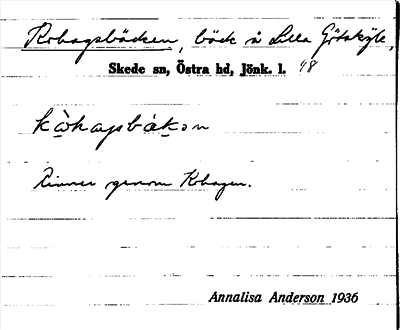 Kohagsbäcken, bäck å Lilla Götskyle,
Skede sn, Östra hd, Jönk. l. 48
kòhagsbäkən
Rinner genom Kohagen.
Annalisa Anderson 1936